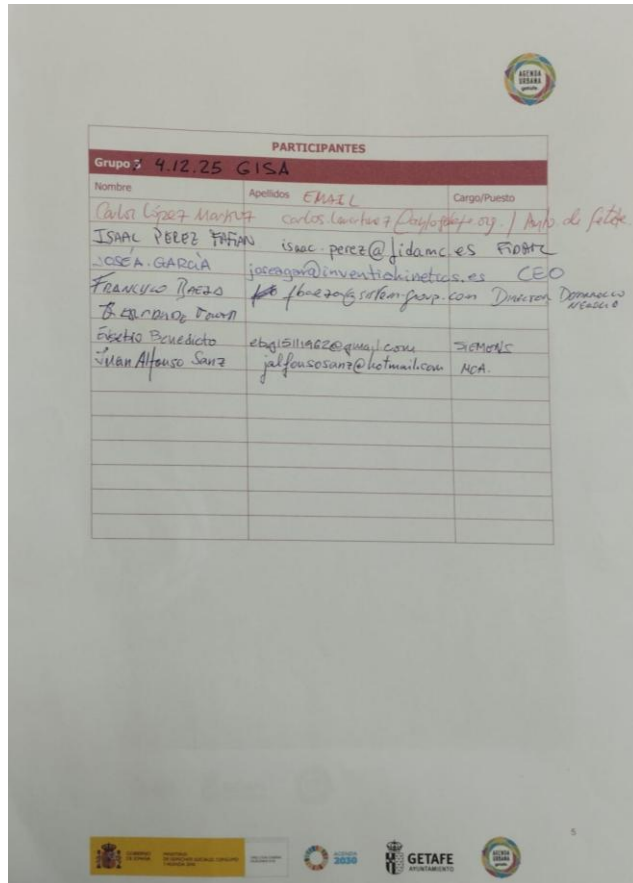 AGENDA
URBANA
getafe
PARTICIPANTES
Grupo 4.12.25 GISA
Nombre Apellidos EMAIL Cargo/Puesto
Carlos López de Getafe
ISAAC PEREZ isaac.perez@fidamc.es FIDAMC
JOSÉ A. GARCÍA CEO
FRANCISCO BAEZA DIRECTOR DESARROLLO
NEGOCIO
Eusebio Benedicto ebg15111962@gmail.com SIEMENS
Juan Alfonso Sanz jalfonsosanz@hotmail.com MCA.
5
GOBIERNO
DE ESPAÑA
MINISTERIO
DE DERECHOS SOCIALES, CONSUMO
Y AGENDA 2030
AGENDA
2030
GETAFE
AYUNTAMIENTO
AGENDA
URBANA
getafe